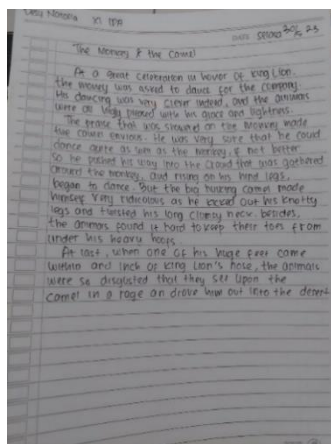 XI IPA
The Monkey & the Camel
At a great celebration in honor of king Lion.
the monkey was asked to dance for the company.
His dancing was very clever indeed, and the animals
were all highly pleased with his grace and lightness.
The praise that was showered on the Monkey made
the camel envious. He was very sure that he could
dance quite as well as the Monkey, if not better
so he pushed his way into the crowd that was gathered
around the monkey, and rising on his hind legs,
began to dance. But the big hulking camel made
himself very ridiculous as he kicked out his knotty
legs and twisted his long clumsy neck. besides,
the animals found it hard to keep their toes from
under his heavy hoofs.
At last, when one of his huge feet came
within and inch of king Lion's nose, the animals
were so disgusted that they set upon the
camel in a rage an drove him out into the desert